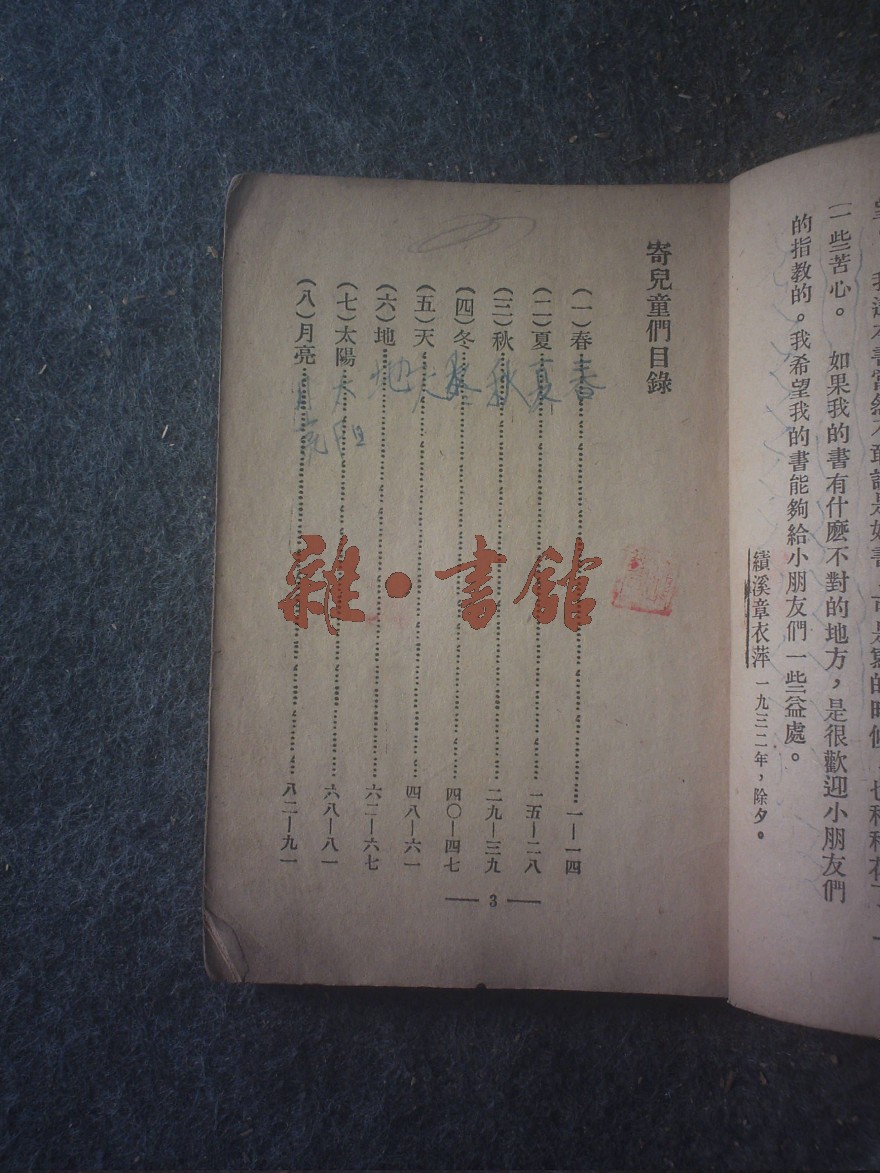 一些苦心。 如果我的書有什麽不對的地方，是很歡迎小朋友們
的指教的。我希望我的書能夠給小朋友們一些益處。
績溪章衣萍 一九三二年，除夕。
寄兒童們目錄
(一)春……一—一四
(二)夏……一五—二八
(三)秋……二九—三九
(四)冬……四〇—四七
(五)天……四八—六一
(六)地……六二—六七
(七)太陽……六八—八一
(八)月亮……八二—九一
春
夏
秋
冬
天
地
太陽
月亮
— 3 —
雜·書館